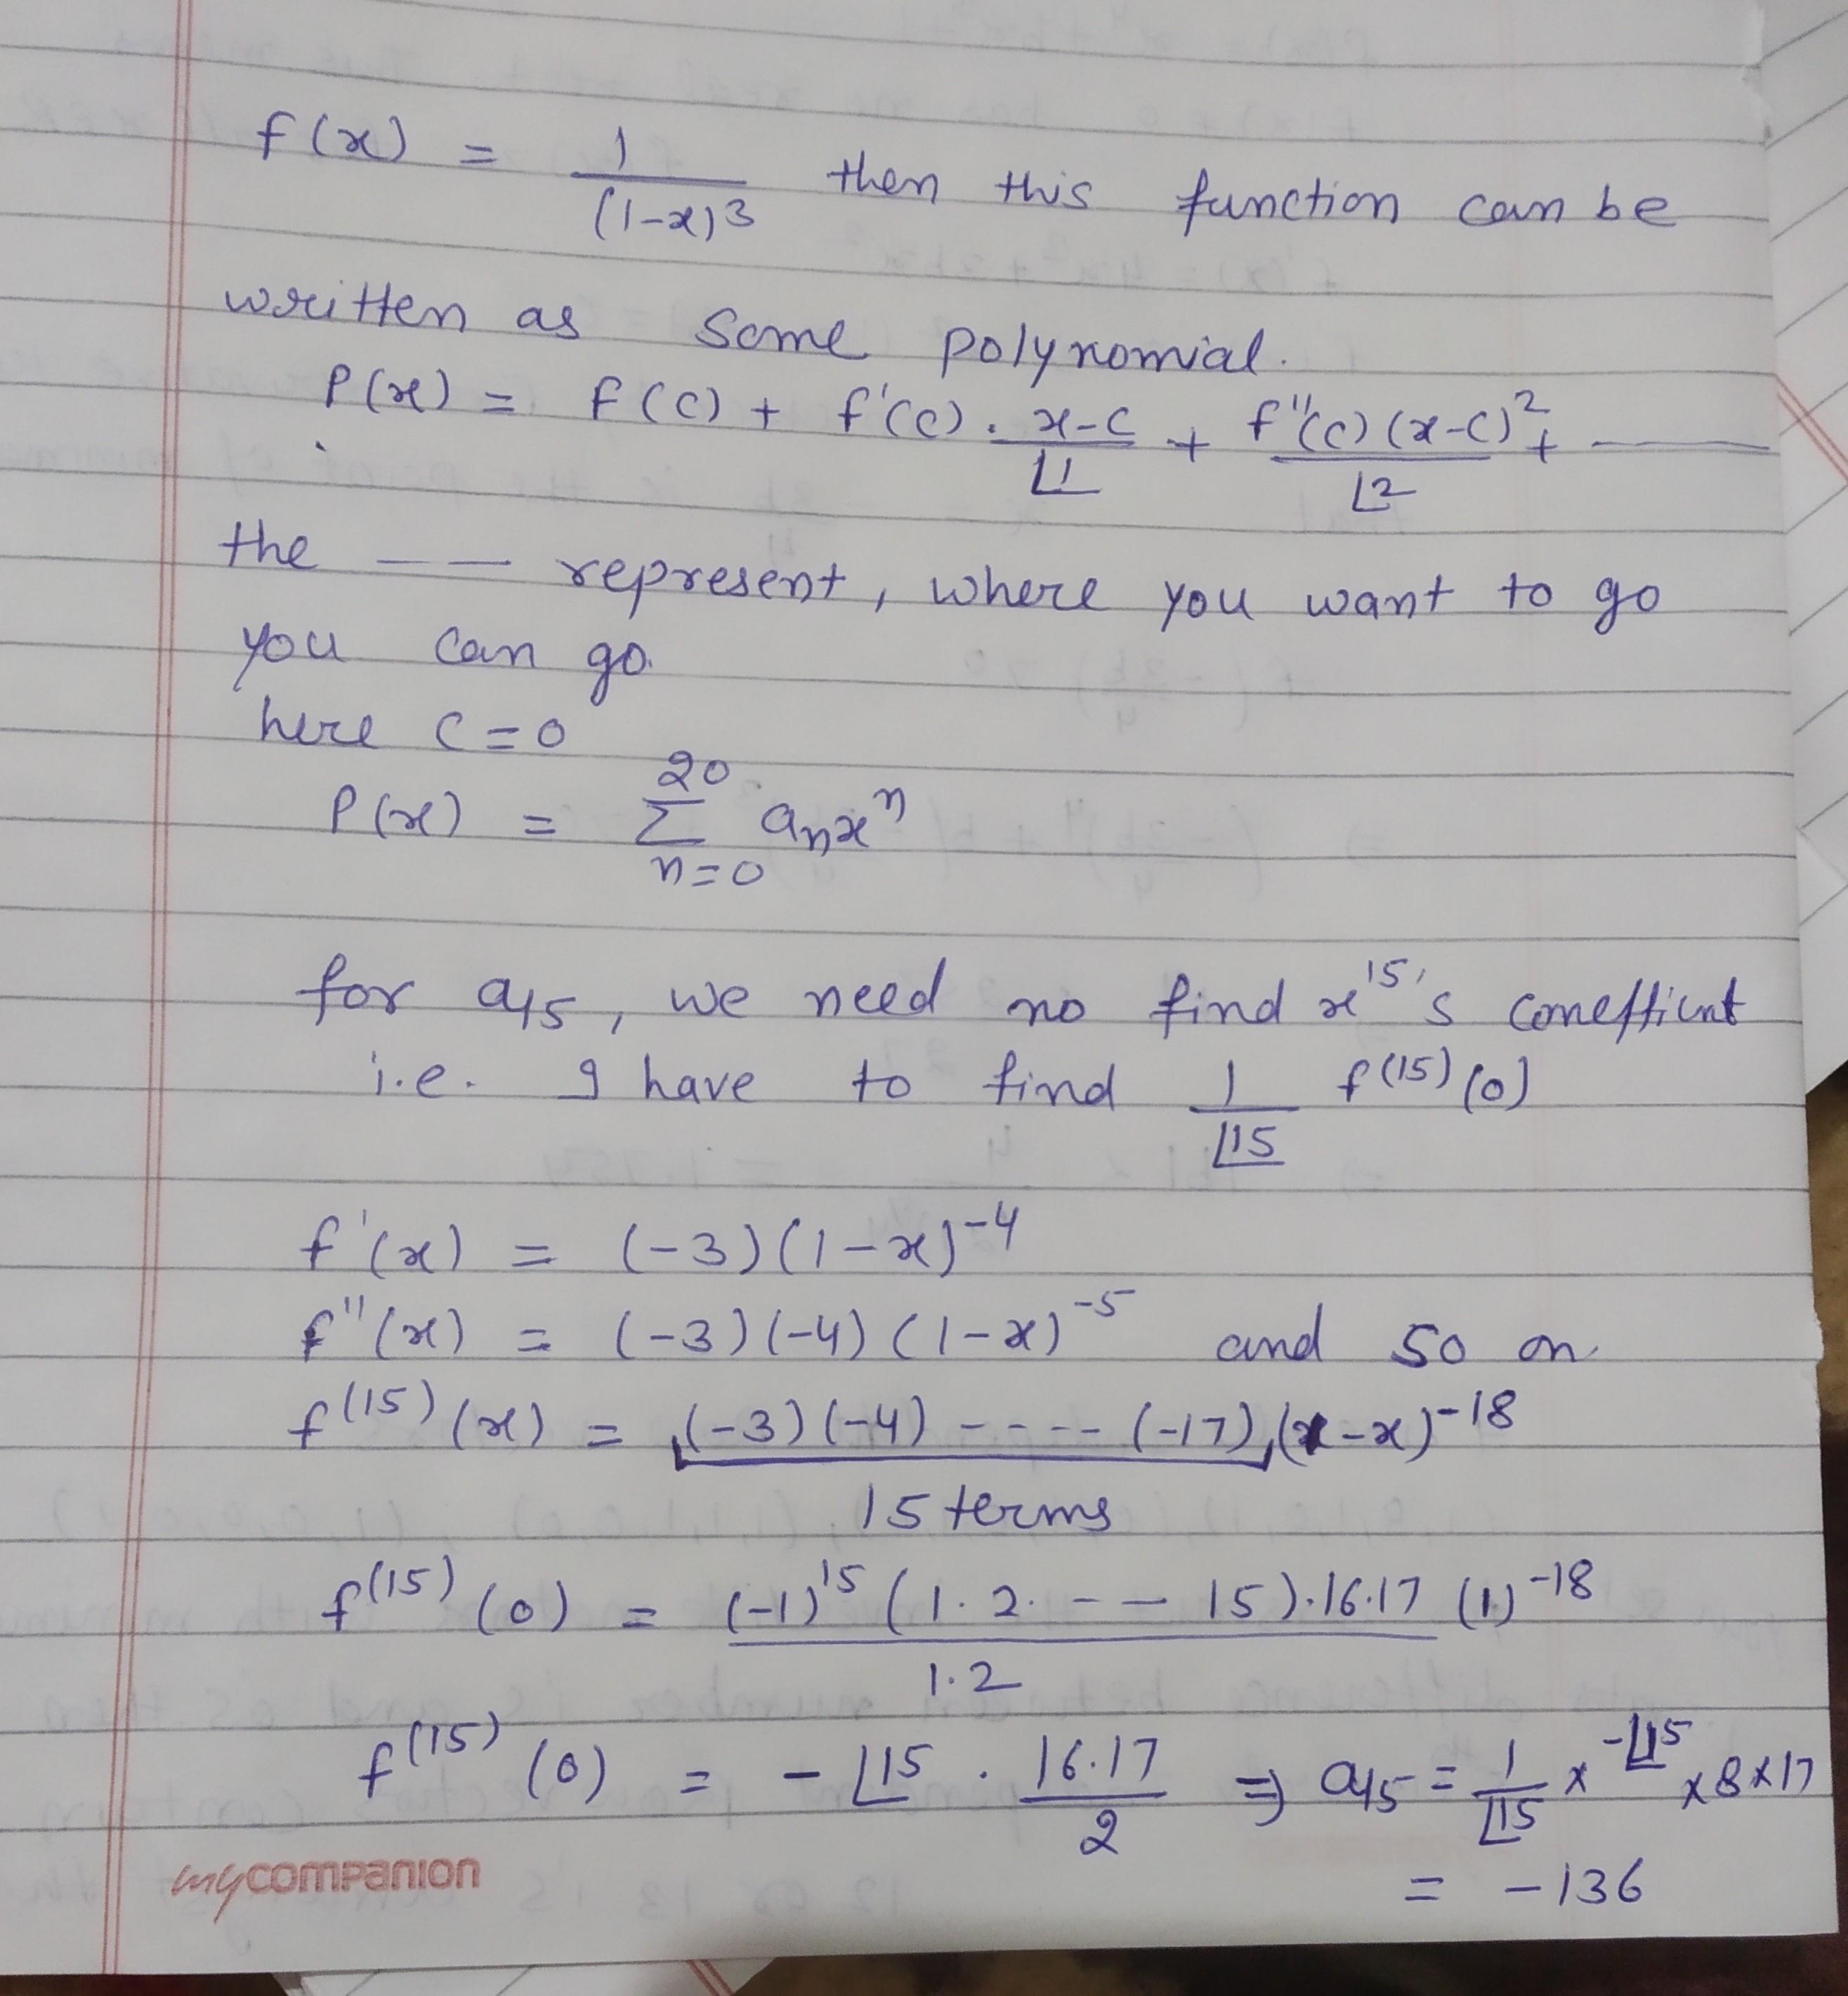 f(x) = 1/(1-x)3 then this function can be
written as some polynomial.
P(x) = f(c) + f'(c) . x-c/⌊1 + f''(c)(x-c)²/⌊2 + ———
the —— represent, where you want to go
you can go.
here c=0
P(x) = 20 Σ n=0 aₙxⁿ
for a15, we need no find x¹⁵'s coneffient
i.e. I have to find 1/⌊15 f(15)(0)
f'(x) = (-3)(1-x)⁻⁴
f''(x) = (-3)(-4)(1-x)⁻⁵ and so on
f⁽¹⁵⁾(x) = (-3)(-4) ---- (-17) (1-x)⁻¹⁸
15 terms
f⁽¹⁵⁾(0) = (-1)¹⁵ (1.2.-- 15).16.17/1.2 (1)⁻¹⁸
f⁽¹⁵⁾(0) = -⌊15 . 16.17/2 ⇒ a15 = 1/⌊15 x -⌊15 x8x17
= -136
mycompanion